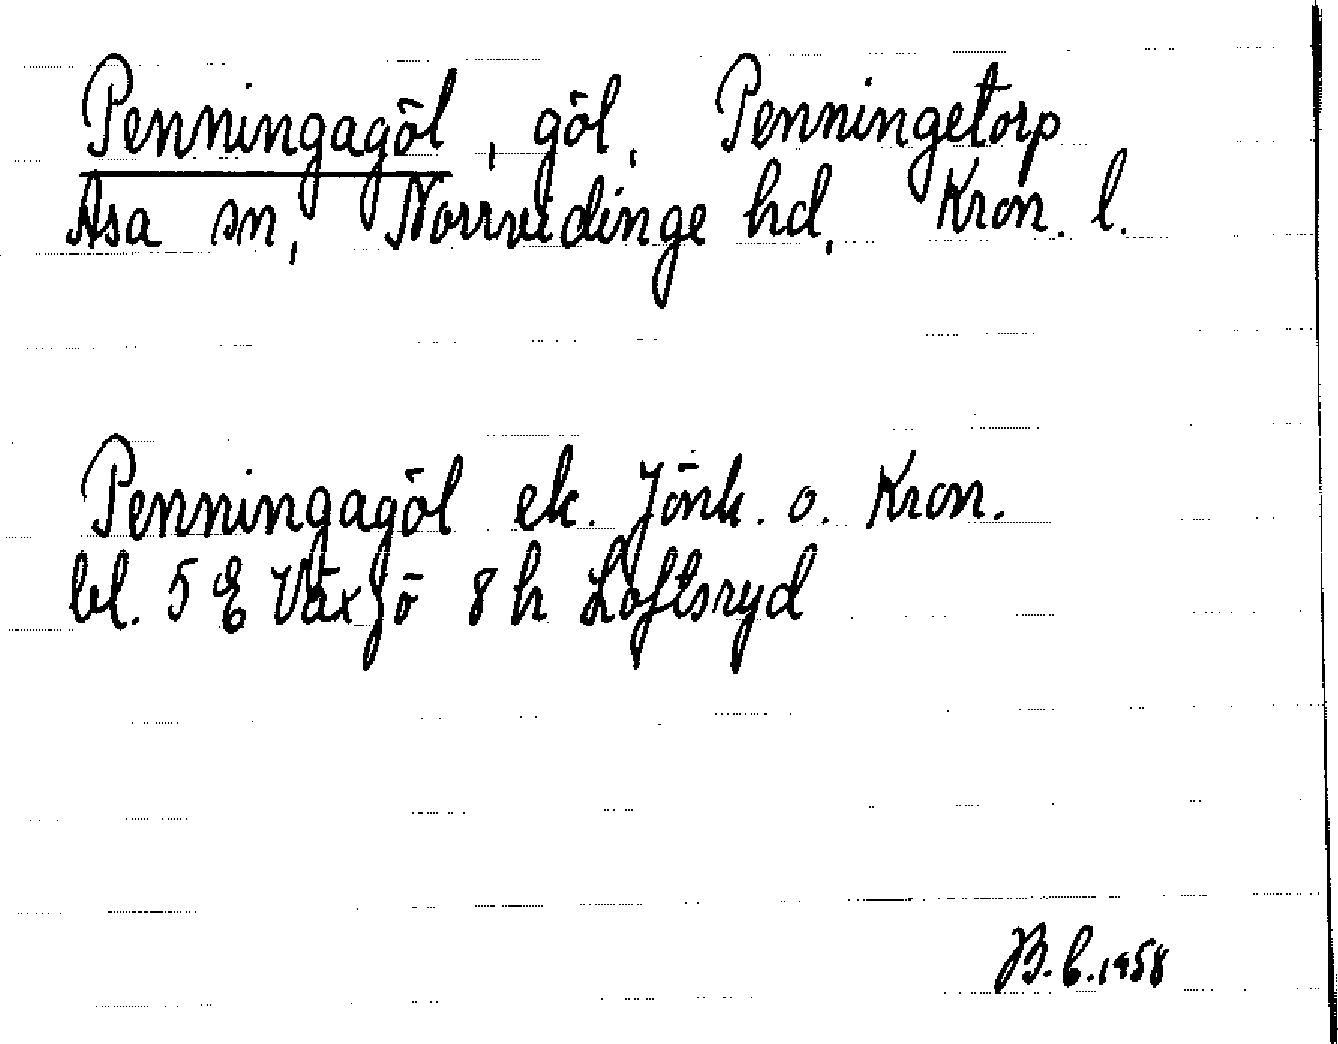 Penningagöl, göl, Penningetorp
Asa sn, Norrvidinge hd, Kron. l.
Penningagöl ek. Jönk. o. Kron.
bl. 5 E Växjö 8 h Loftsryd
B.C. 1958